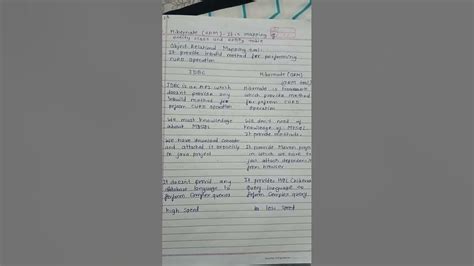 Hibernate (ORM) It is mapping
entity class and entity
Object Relational Mapping tool.
It provide inbuild method for performing
CURD operation
JDBC
Hibernate (ORM)
JDBC is an API which
doesn't provide any
inbuild method for
perform CURD operation
Hibernate is framework
which provide method
for perform CURD
operation
We must knowledge
about MySQL
We don't need of
knowledge of MySQL
It provide methods.
We have download
and attached it
to java project
It provide Maven
in which we have to
just attach dependency
from browser
It doesn't provide any
database language to
perform complex queries
It provides HQL
query language to
perform complex queries
high speed
low speed